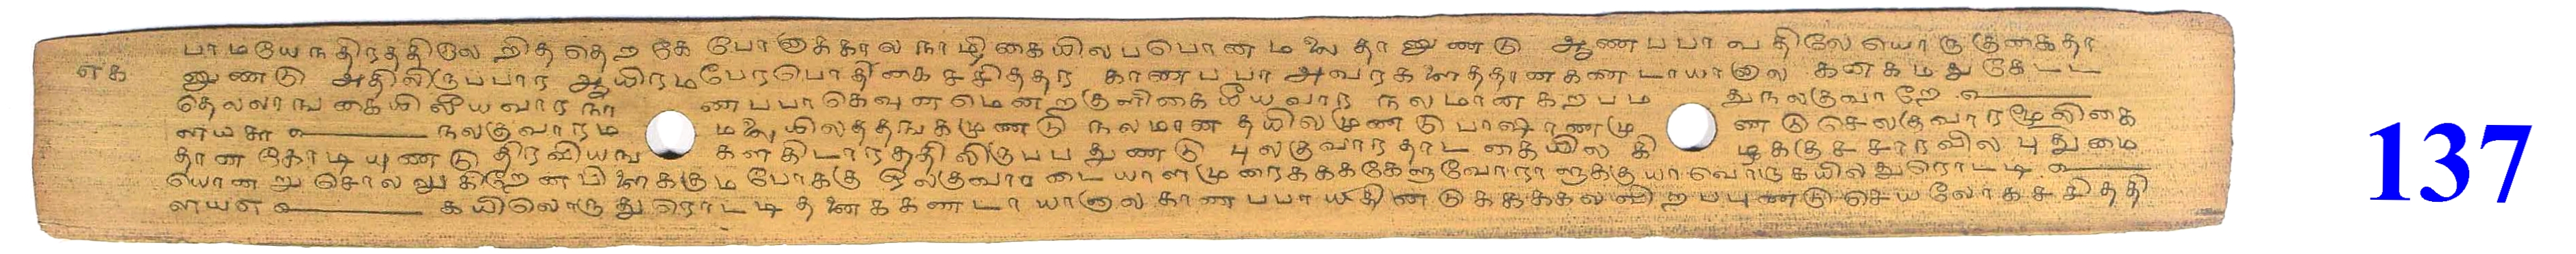 பாமயேநதிரததிலே றித தெற கே போனாக்கால நாழிகையிலபபொனம லை தானுண்டு ஆணபபா வதிலே யொரு குகைதா
எக னுணடு அதிலிருப்பார ஆயிரமபேரபொதிகை சசிததர காணபபா அவரகளைததானகணடாயானால கனகமதுகேடட
தெலலாங கையிலீயவாரநா ணபபாகெவுனமெனறகுளிகையீயவார நலமானகறபம துநலகுவாறே
ளயசு நலகுவாரம மலையிலததஙகமுணடு நலமான தயிலமுணடு பாஷாணமு ணடுசெலகுவாரமூலிகை
தான கோடியுணடு திரவியங களகிடாரததிலிருபபதுணடு புலகுவார தாடகையில கி ழககுசசாரவில புதுமை
யொனறு சொலலுகிறேன பிளைககும போககு ஒலகுவார டையாளமுரைககககேளுவோராளுககுயாவொருகயிலதுரொடடி
ளயஎ கயிலொருதுரொடடி தனைககணடாயானால காணபபாயதினடுகககலலிறபபுணடு செயலோகசசிததி